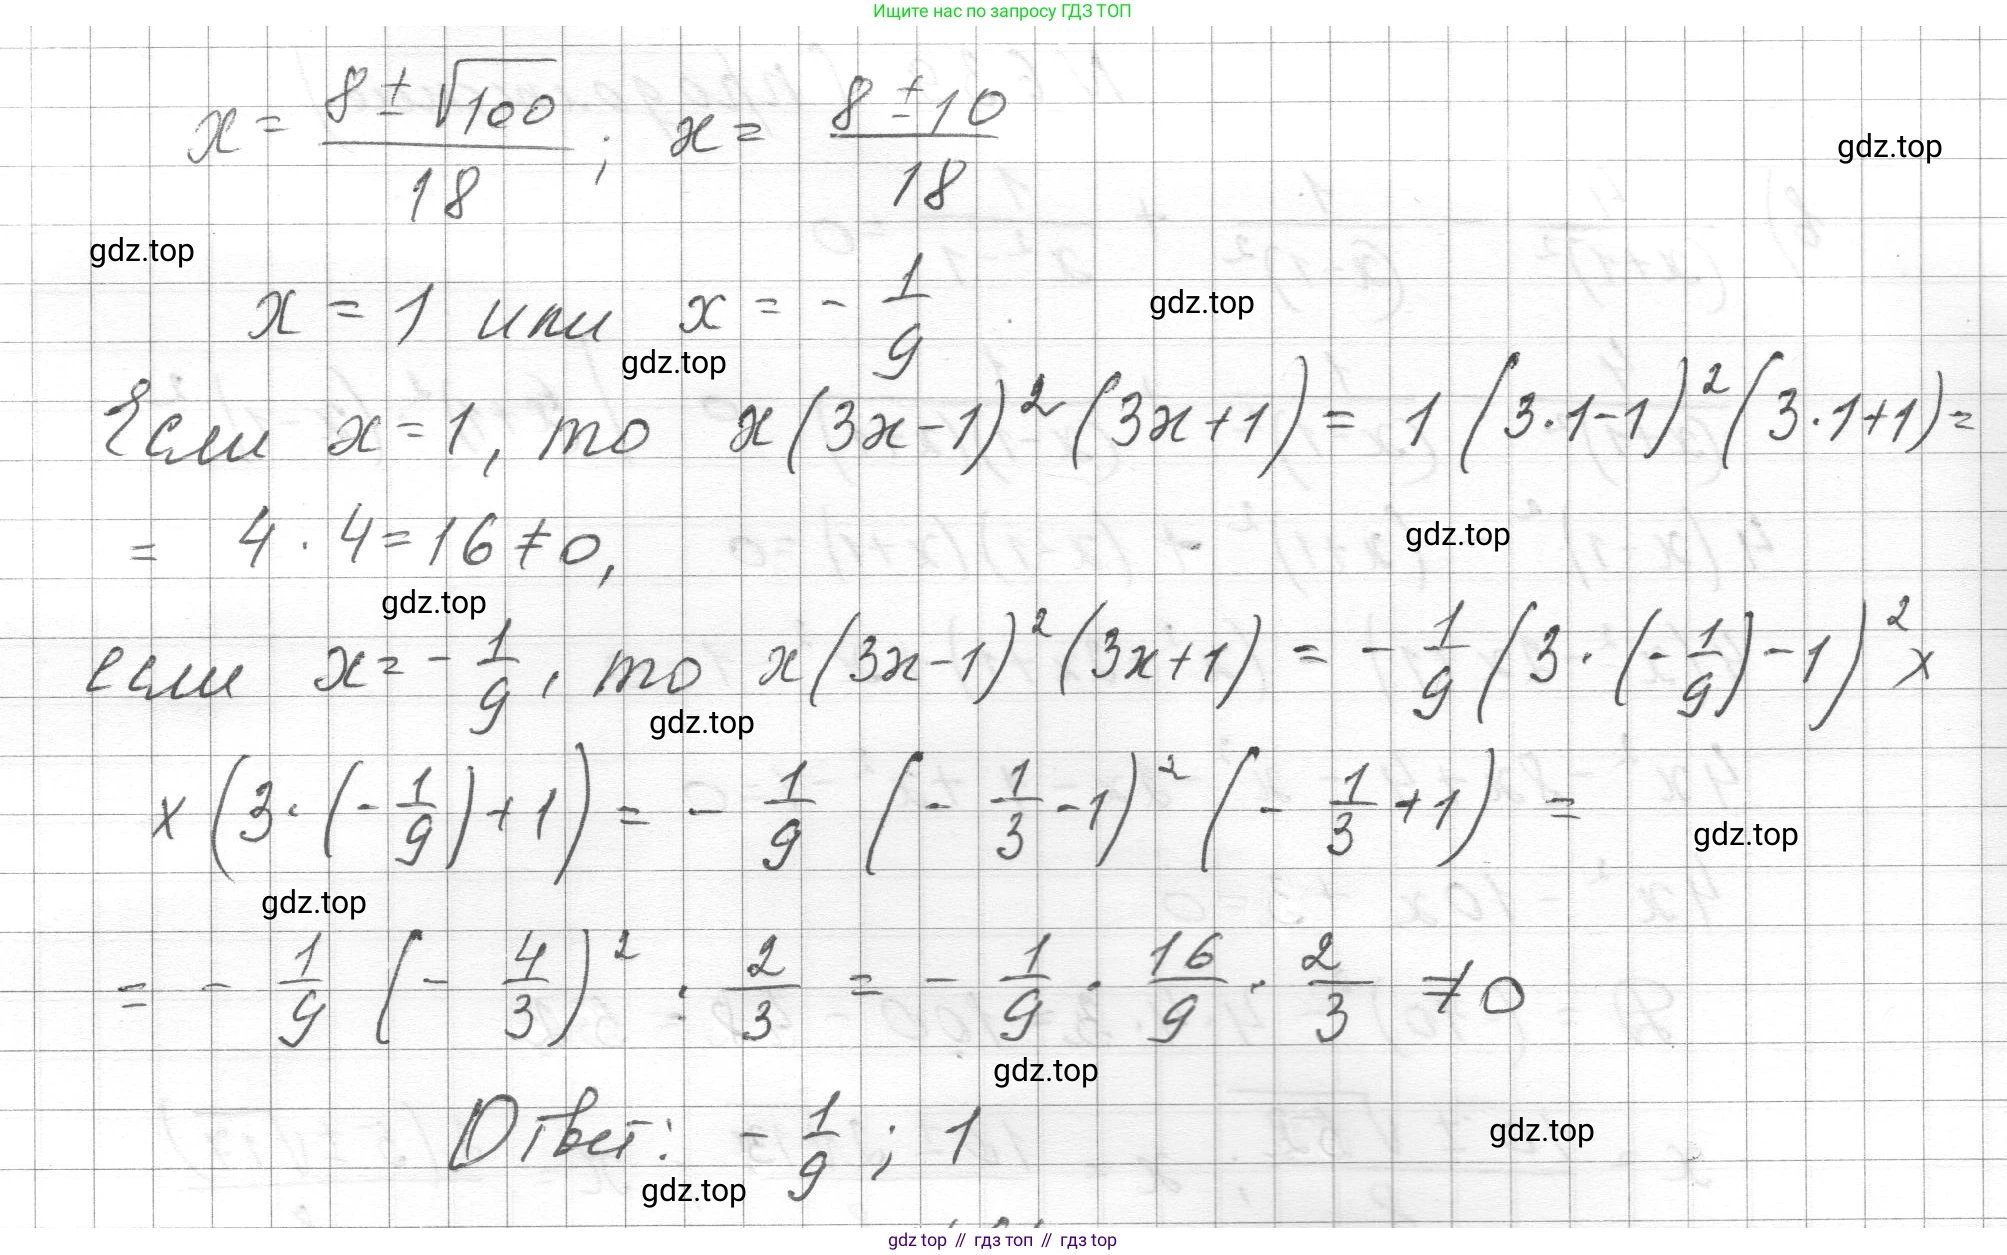 Ищите нас по запросу ГДЗ ТОП
x = (8 ± √100)/18 ; x = (8 ± 10)/18
gdz.top
gdz.top
x = 1 или x = - 1/9
gdz.top
gdz.top
Если x = 1, то x(3x-1)²(3x+1) = 1(3·1-1)²(3·1+1) =
= 4 · 4 = 16 ≠ 0,
gdz.top
gdz.top
если x = - 1/9, то x(3x-1)²(3x+1) = - 1/9 (3·(-1/9)-1)² ×
gdz.top
× (3·(-1/9)+1) = - 1/9 (- 1/3 - 1)² (- 1/3 + 1) =
gdz.top
gdz.top
= - 1/9 (- 4/3)² · 2/3 = - 1/9 · 16/9 · 2/3 ≠ 0
gdz.top
Ответ: - 1/9 ; 1
gdz.top
gdz.top
gdz top // гдз топ // гдз top